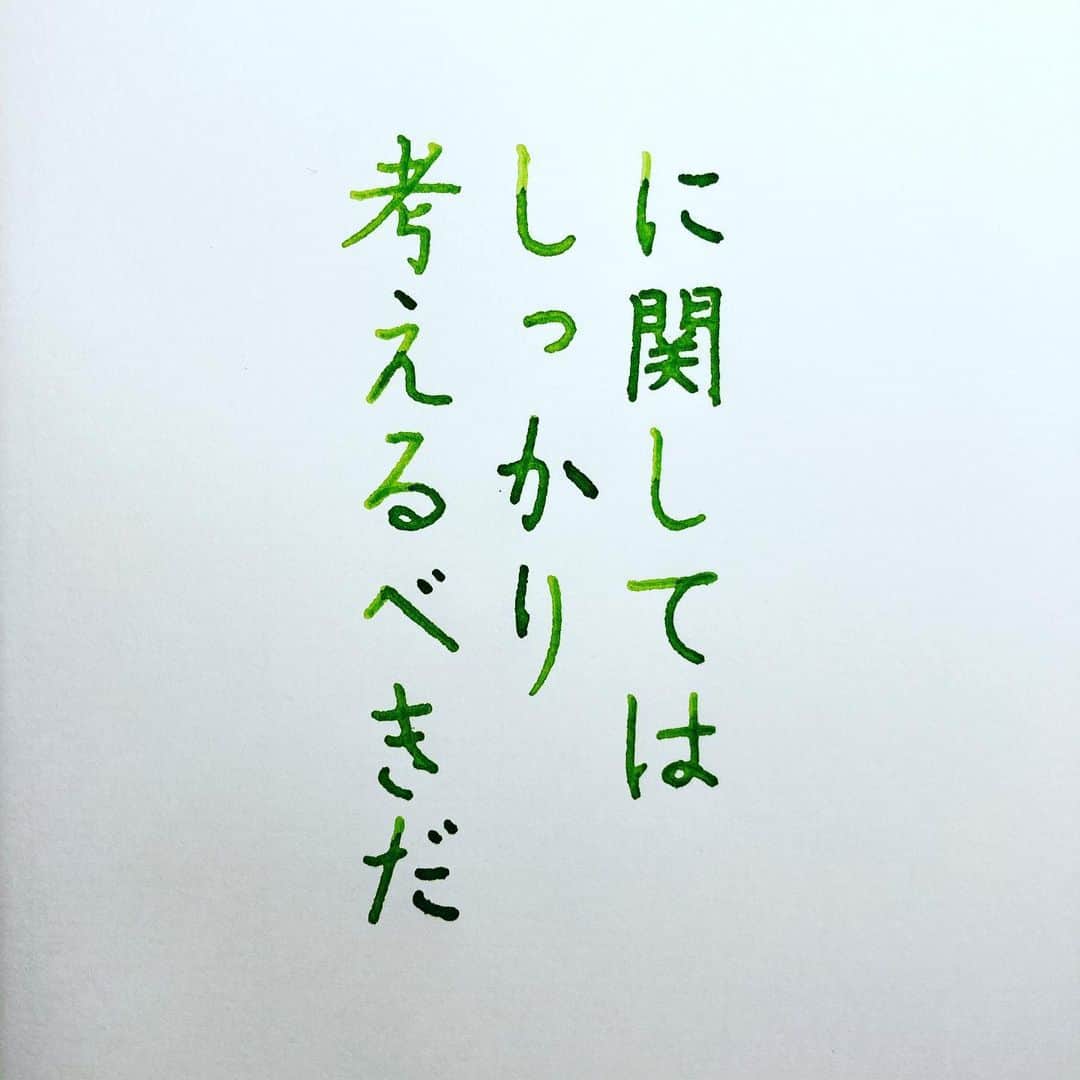 に関しては
しっかり
考えるべきだ